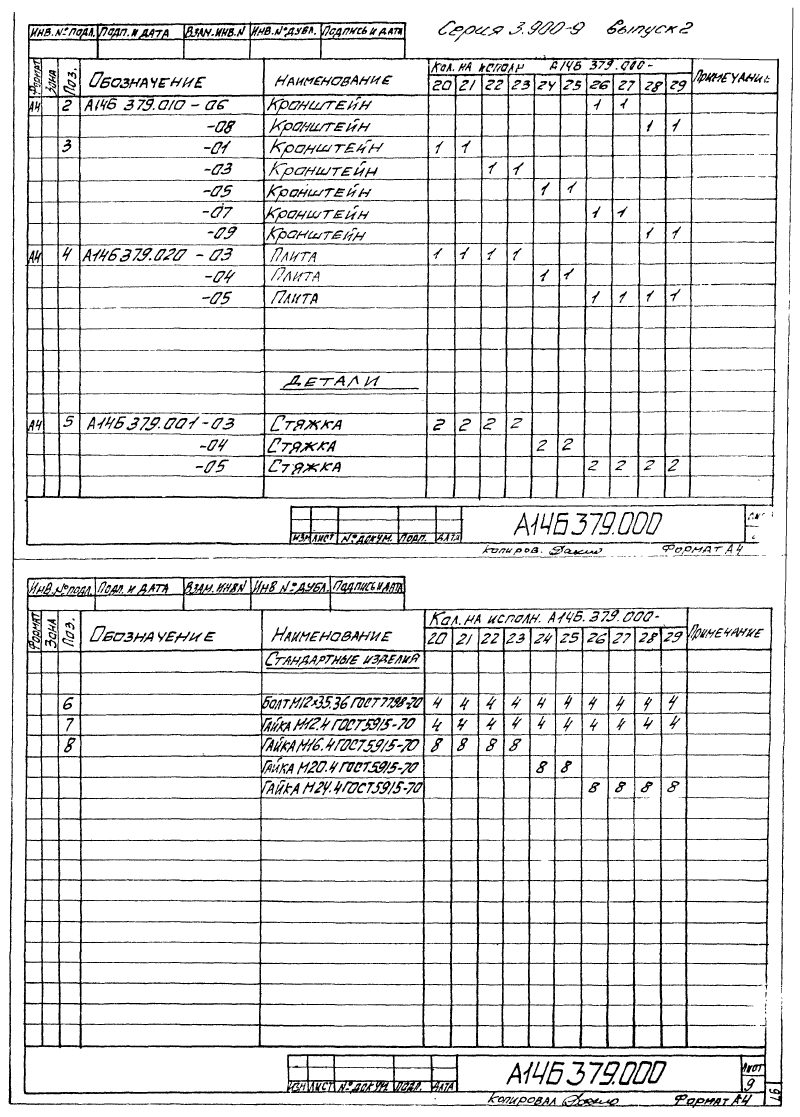 Серия 3.900-9 Выпуск 2
ИНВ.№ПОДЛ. ПОДП. И ДАТА ВЗАМ.ИНВ.N ИНВ.N°ДУБЛ. ПОДПИСЬ И ДАТА
ФОРМАТ ЗОНА ПОЗ. ОБОЗНАЧЕНИЕ НАИМЕНОВАНИЕ Кол. на исполн А14Б 379.000- ПРИМЕЧАНИЕ
20 21 22 23 24 25 26 27 28 29
А4 2 А14Б 379.010 - 06 Кронштейн 1 1
-08 Кронштейн 1 1
3 -01 Кронштейн 1 1
-03 Кронштейн 1 1
-05 Кронштейн 1 1
-07 Кронштейн 1 1
-09 Кронштейн 1 1
А4 4 А14Б379.020 - 03 Плита 1 1 1 1
-04 Плита 1 1
-05 Плита 1 1 1 1
ДЕТАЛИ
А4 5 А14Б379.001-03 Стяжка 2 2 2 2
-04 Стяжка 2 2
-05 Стяжка 2 2 2 2
А14Б379.000
ИЗМ ЛИСТ N°ДОКУМ. ПОДП. ДАТА
Копиров. ФОРМАТ А4
ИНВ.N°ПОДЛ. ПОДП. И ДАТА ВЗАМ. ИНВ N ИНВ N°ДУБЛ. ПОДПИСЬ И ДАТА
ФОРМАТ ЗОНА ПОЗ. ОБОЗНАЧЕНИЕ НАИМЕНОВАНИЕ Кол. на исполн. А14Б.379.000- ПРИМЕЧАНИЕ
20 21 22 23 24 25 26 27 28 29
СТАНДАРТНЫЕ ИЗДЕЛИЯ
6 БОЛТ М12×35.36 ГОСТ 7798-70 4 4 4 4 4 4 4 4 4 4
7 ГАЙКА М12.4 ГОСТ5915-70 4 4 4 4 4 4 4 4 4 4
8 ГАЙКА М16.4 ГОСТ5915-70 8 8 8 8
ГАЙКА М20.4 ГОСТ5915-70 8 8
ГАЙКА М24.4 ГОСТ5915-70 8 8 8 8
А14Б379.000 ЛИСТ
ИЗМ ЛИСТ N°ДОКУМ. ПОДП. ДАТА 9
Копировал ФОРМАТ А4
97